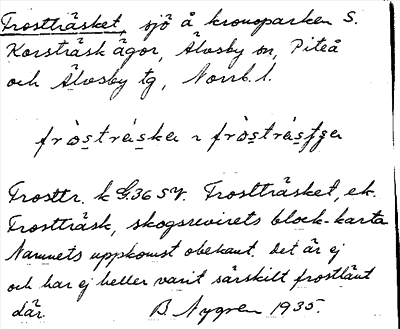 Frostträsket, sjö å kronoparken S.
Korsträsk ägor, Älvsby sn, Piteå
och Älvsby tg, Norrb. l.
fròsträska ɿ fròsträsʃʒa
Frosttr. k G.36 SV. Frostträsket, ek.
Frostträsk, skogsrevirets block-karta
Namnets uppkomst obekant. Det är ej
och har ej heller varit särskilt frostlänt
där. B. Nygren 1935.